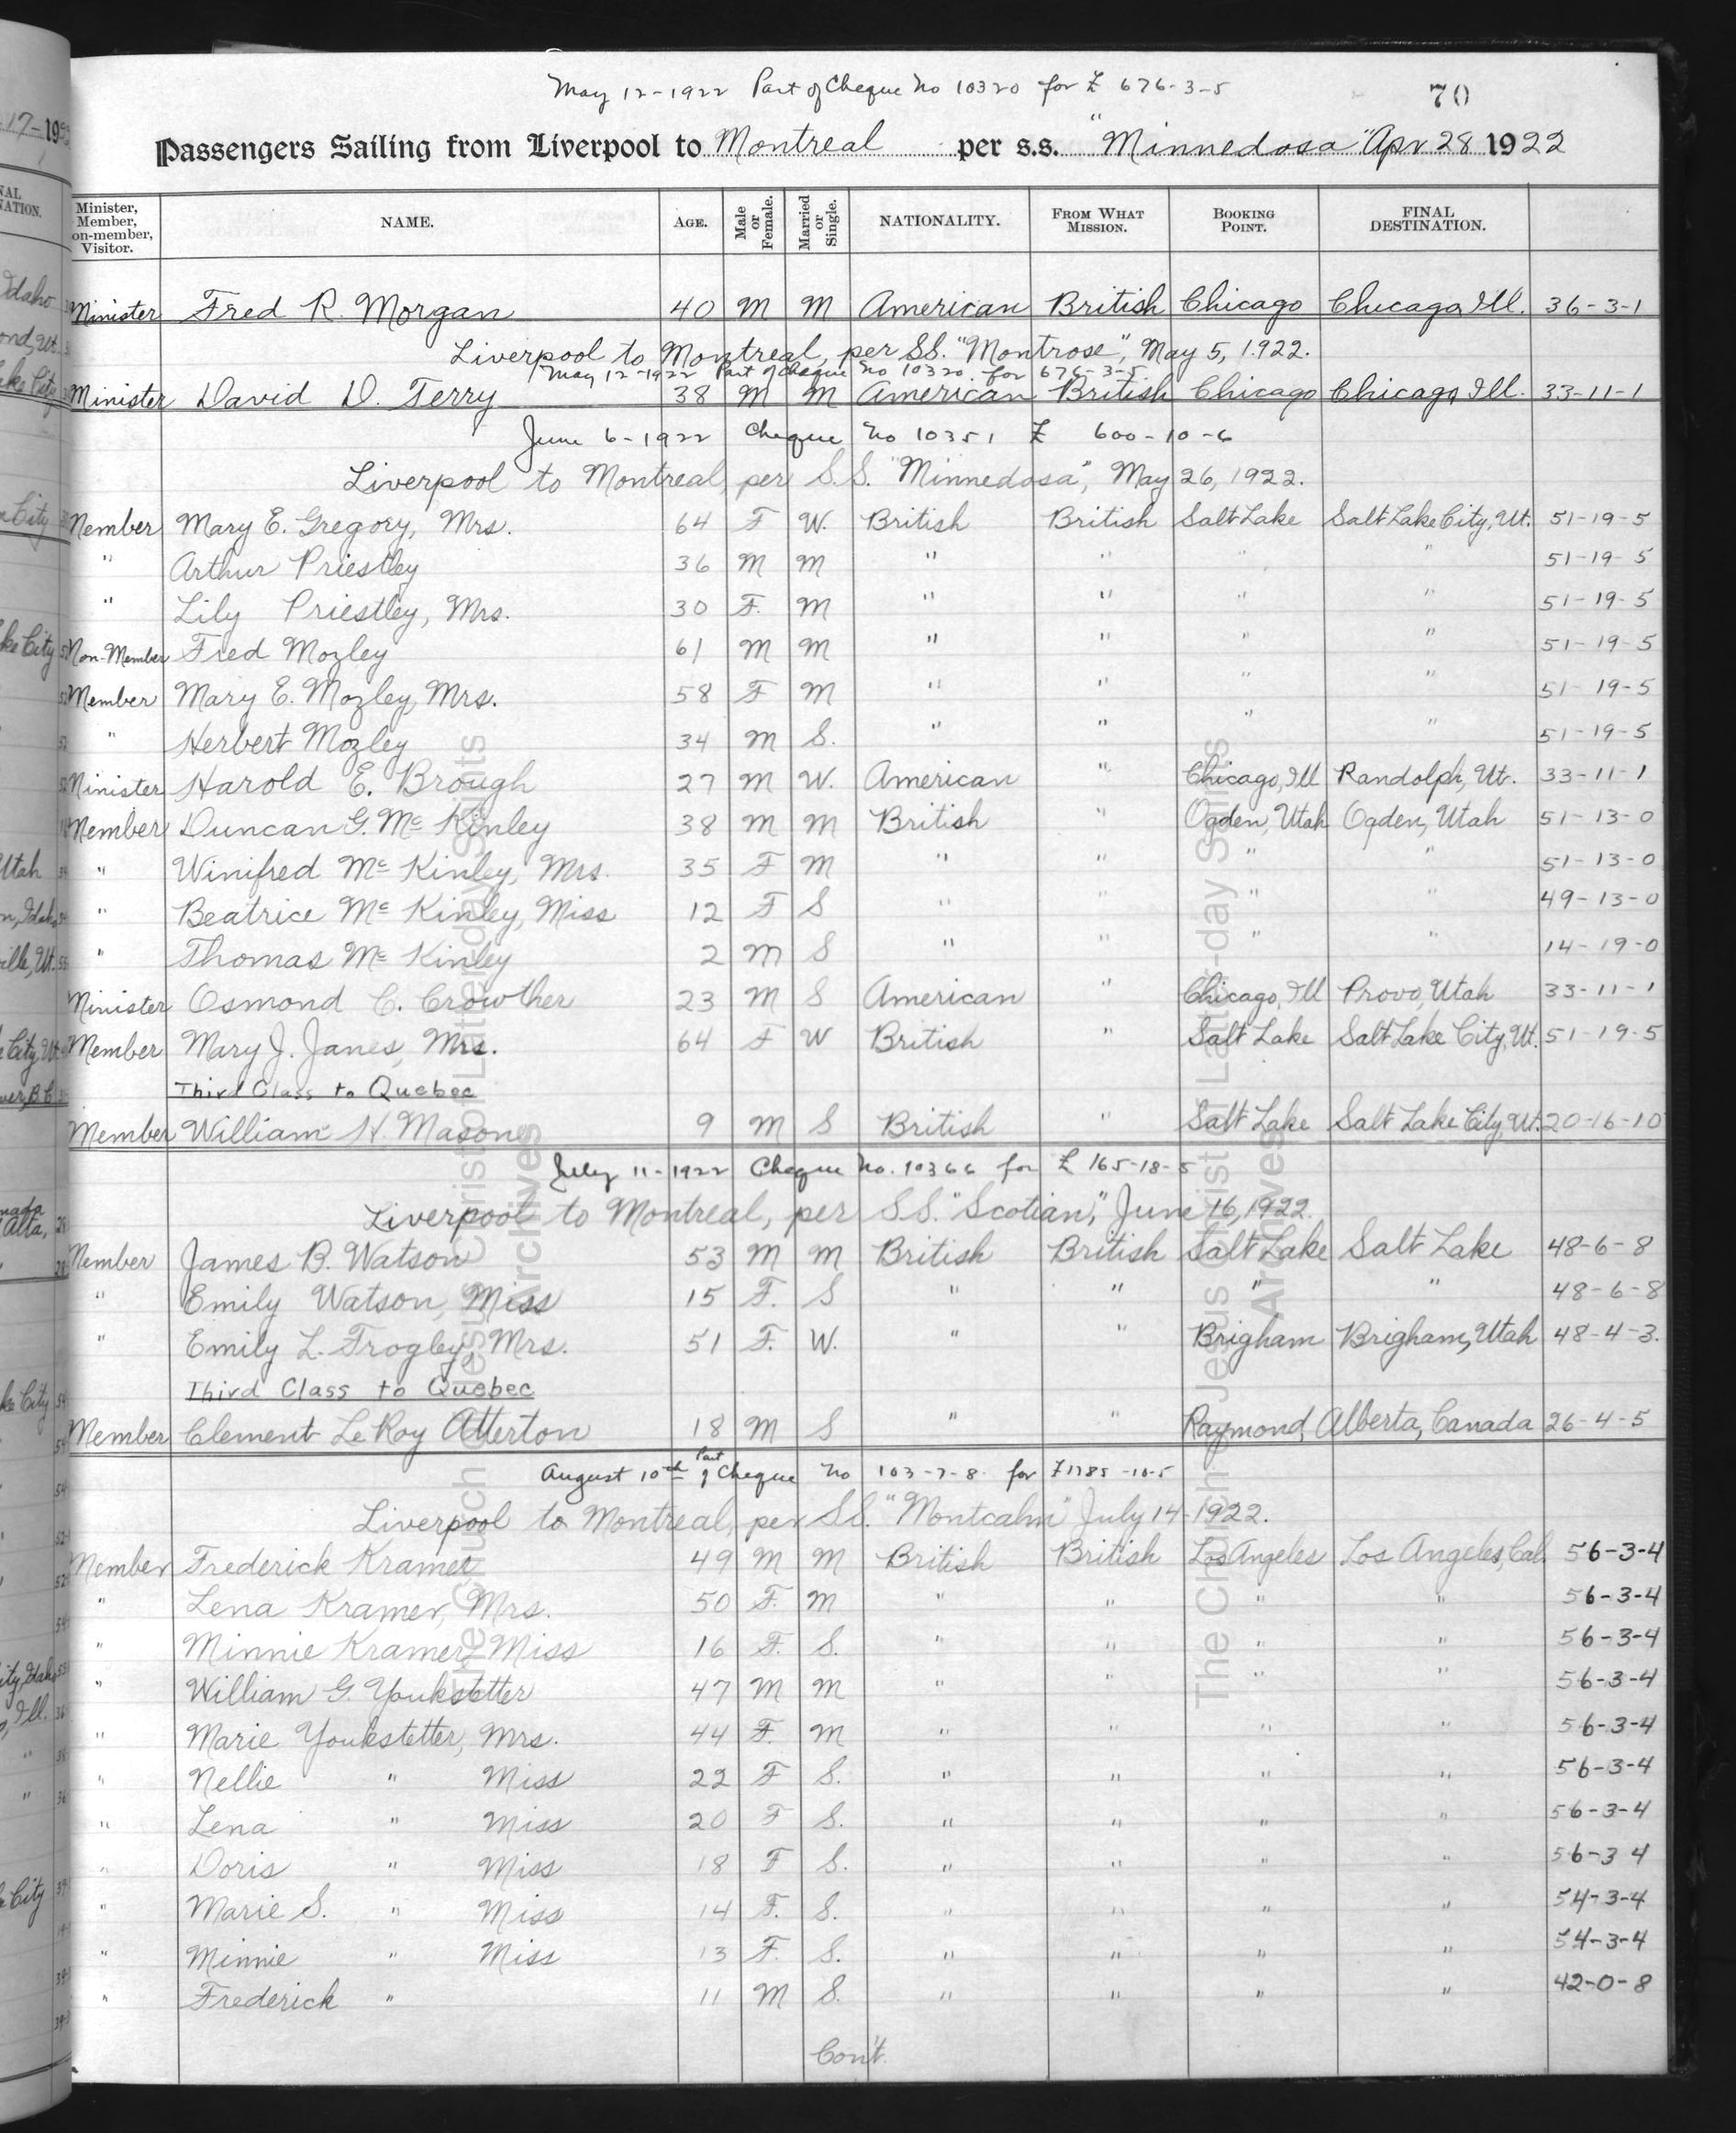 May 12-1922 Part of Cheque No 10320 for £ 676-3-5
70
Passengers Sailing from Liverpool to Montreal per s.s. "Minnedosa" Apr 28 1922
Minister, Member, on-member, Visitor. NAME. AGE. Male or Female. Married or Single. NATIONALITY. FROM WHAT MISSION. BOOKING POINT. FINAL DESTINATION.
Minister Fred R. Morgan 40 M M American British Chicago Chicago, Ill. 36-3-1
Liverpool to Montreal, per SS. "Montrose", May 5, 1922.
May 12-1922 Part of Cheque No 10320 for 676-3-5
Minister David D. Terry 38 M M American British Chicago Chicago, Ill. 33-11-1
June 6-1922 Cheque No 10351 £ 600-10-6
Liverpool to Montreal, per S.S. "Minnedosa", May 26, 1922.
Member Mary E. Gregory, Mrs. 64 F W. British British Salt Lake Salt Lake City, Ut. 51-19-5
" Arthur Priestley 36 M M " " " " 51-19-5
" Lily Priestley, Mrs. 30 F. M " " " " 51-19-5
Non-Member Fred Mozley 61 M M " " " " 51-19-5
Member Mary E. Mozley, Mrs. 58 F M " " " " 51-19-5
" Herbert Mozley 34 M S. " " " " 51-19-5
Minister Harold E. Brough 27 M W. American " Chicago, Ill Randolph, Ut. 33-11-1
Member Duncan G. Mc Kinley 38 M M British " Ogden, Utah Ogden, Utah 51-13-0
" Winifred Mc Kinley, Mrs. 35 F M " " " " 51-13-0
" Beatrice Mc Kinley, Miss 12 F S " " " " 49-13-0
" Thomas Mc Kinley 2 M S " " " " 14-19-0
Minister Osmond C. Crowther 23 M S American " Chicago, Ill Provo, Utah 33-11-1
Member Mary J. Janes, Mrs. 64 F W British " Salt Lake Salt Lake City, Ut. 51-19-5
Third Class to Quebec
Member William H. Mason 9 M S British " Salt Lake Salt Lake City, Ut. 20-16-10
July 11-1922 Cheque No. 10366 for £ 165-18-5
Liverpool to Montreal, per S.S. "Scotian," June 16, 1922.
Member James B. Watson 53 M M British British Salt Lake Salt Lake 48-6-8
" Emily Watson, Miss 15 F. S " " " " 48-6-8
" Emily L. Frogley, Mrs. 51 F. W. " " Brigham Brigham, Utah 48-4-3.
Third Class to Quebec
Member Clement LeRoy Atterton 18 M S " " Raymond, Alberta, Canada 26-4-5
August 10th Part of Cheque No 103-7-8 for £1785-10-5
Liverpool to Montreal, per S.S. "Montcalm" July 14-1922.
Member Frederick Kramer 49 M M British British Los Angeles Los Angeles, Cal. 56-3-4
" Lena Kramer, Mrs. 50 F. M " " " " 56-3-4
" Minnie Kramer, Miss 16 F. S. " " " " 56-3-4
" William G. Youkstetter 47 M M " " " " 56-3-4
" Marie Youkstetter, Mrs. 44 F. M " " " " 56-3-4
" Nellie " Miss 22 F S. " " " " 56-3-4
" Lena " Miss 20 F S. " " " " 56-3-4
" Doris " Miss 18 F S. " " " " 56-3 4
" Marie S. " Miss 14 F. S. " " " " 54-3-4
" Minnie " Miss 13 F. S. " " " " 54-3-4
" Frederick " 11 M S. " " " " 42-0-8
Con't.
The Church of Jesus Christ of Latter-day Saints
Archives
The Church of Jesus Christ of Latter-day Saints
Archives